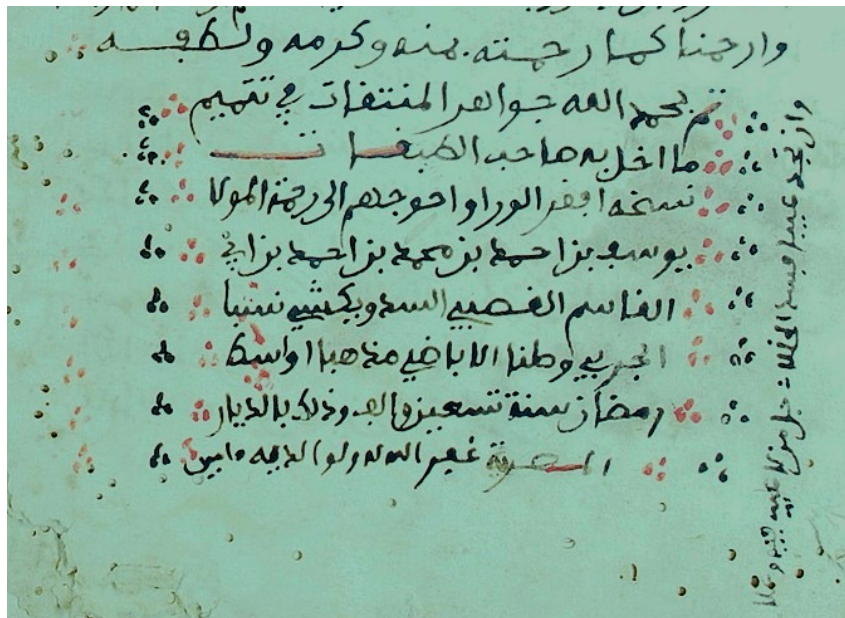 وارحمنا كما رحمته بمنه وكرمه ولطفه
تم بحمد الله جواهر المنتقات في تتميم
ما اخل به صاحب الطبقات
نسخه افقر الورا واحوجهم الى رحمة المولا
يوسف بن احمد بن محمد بن احمد بن ابي
القاسم السدويكشي نسبا
الجربي وطنا الاباضي مذهبا اواسط
رمضان سنة تسعين والف وذلك بالديار
المصرية غفر الله له ولوالديه ءامين
وان تجد عيبا فسد الخللا جل من لا عيب فيه وعلا